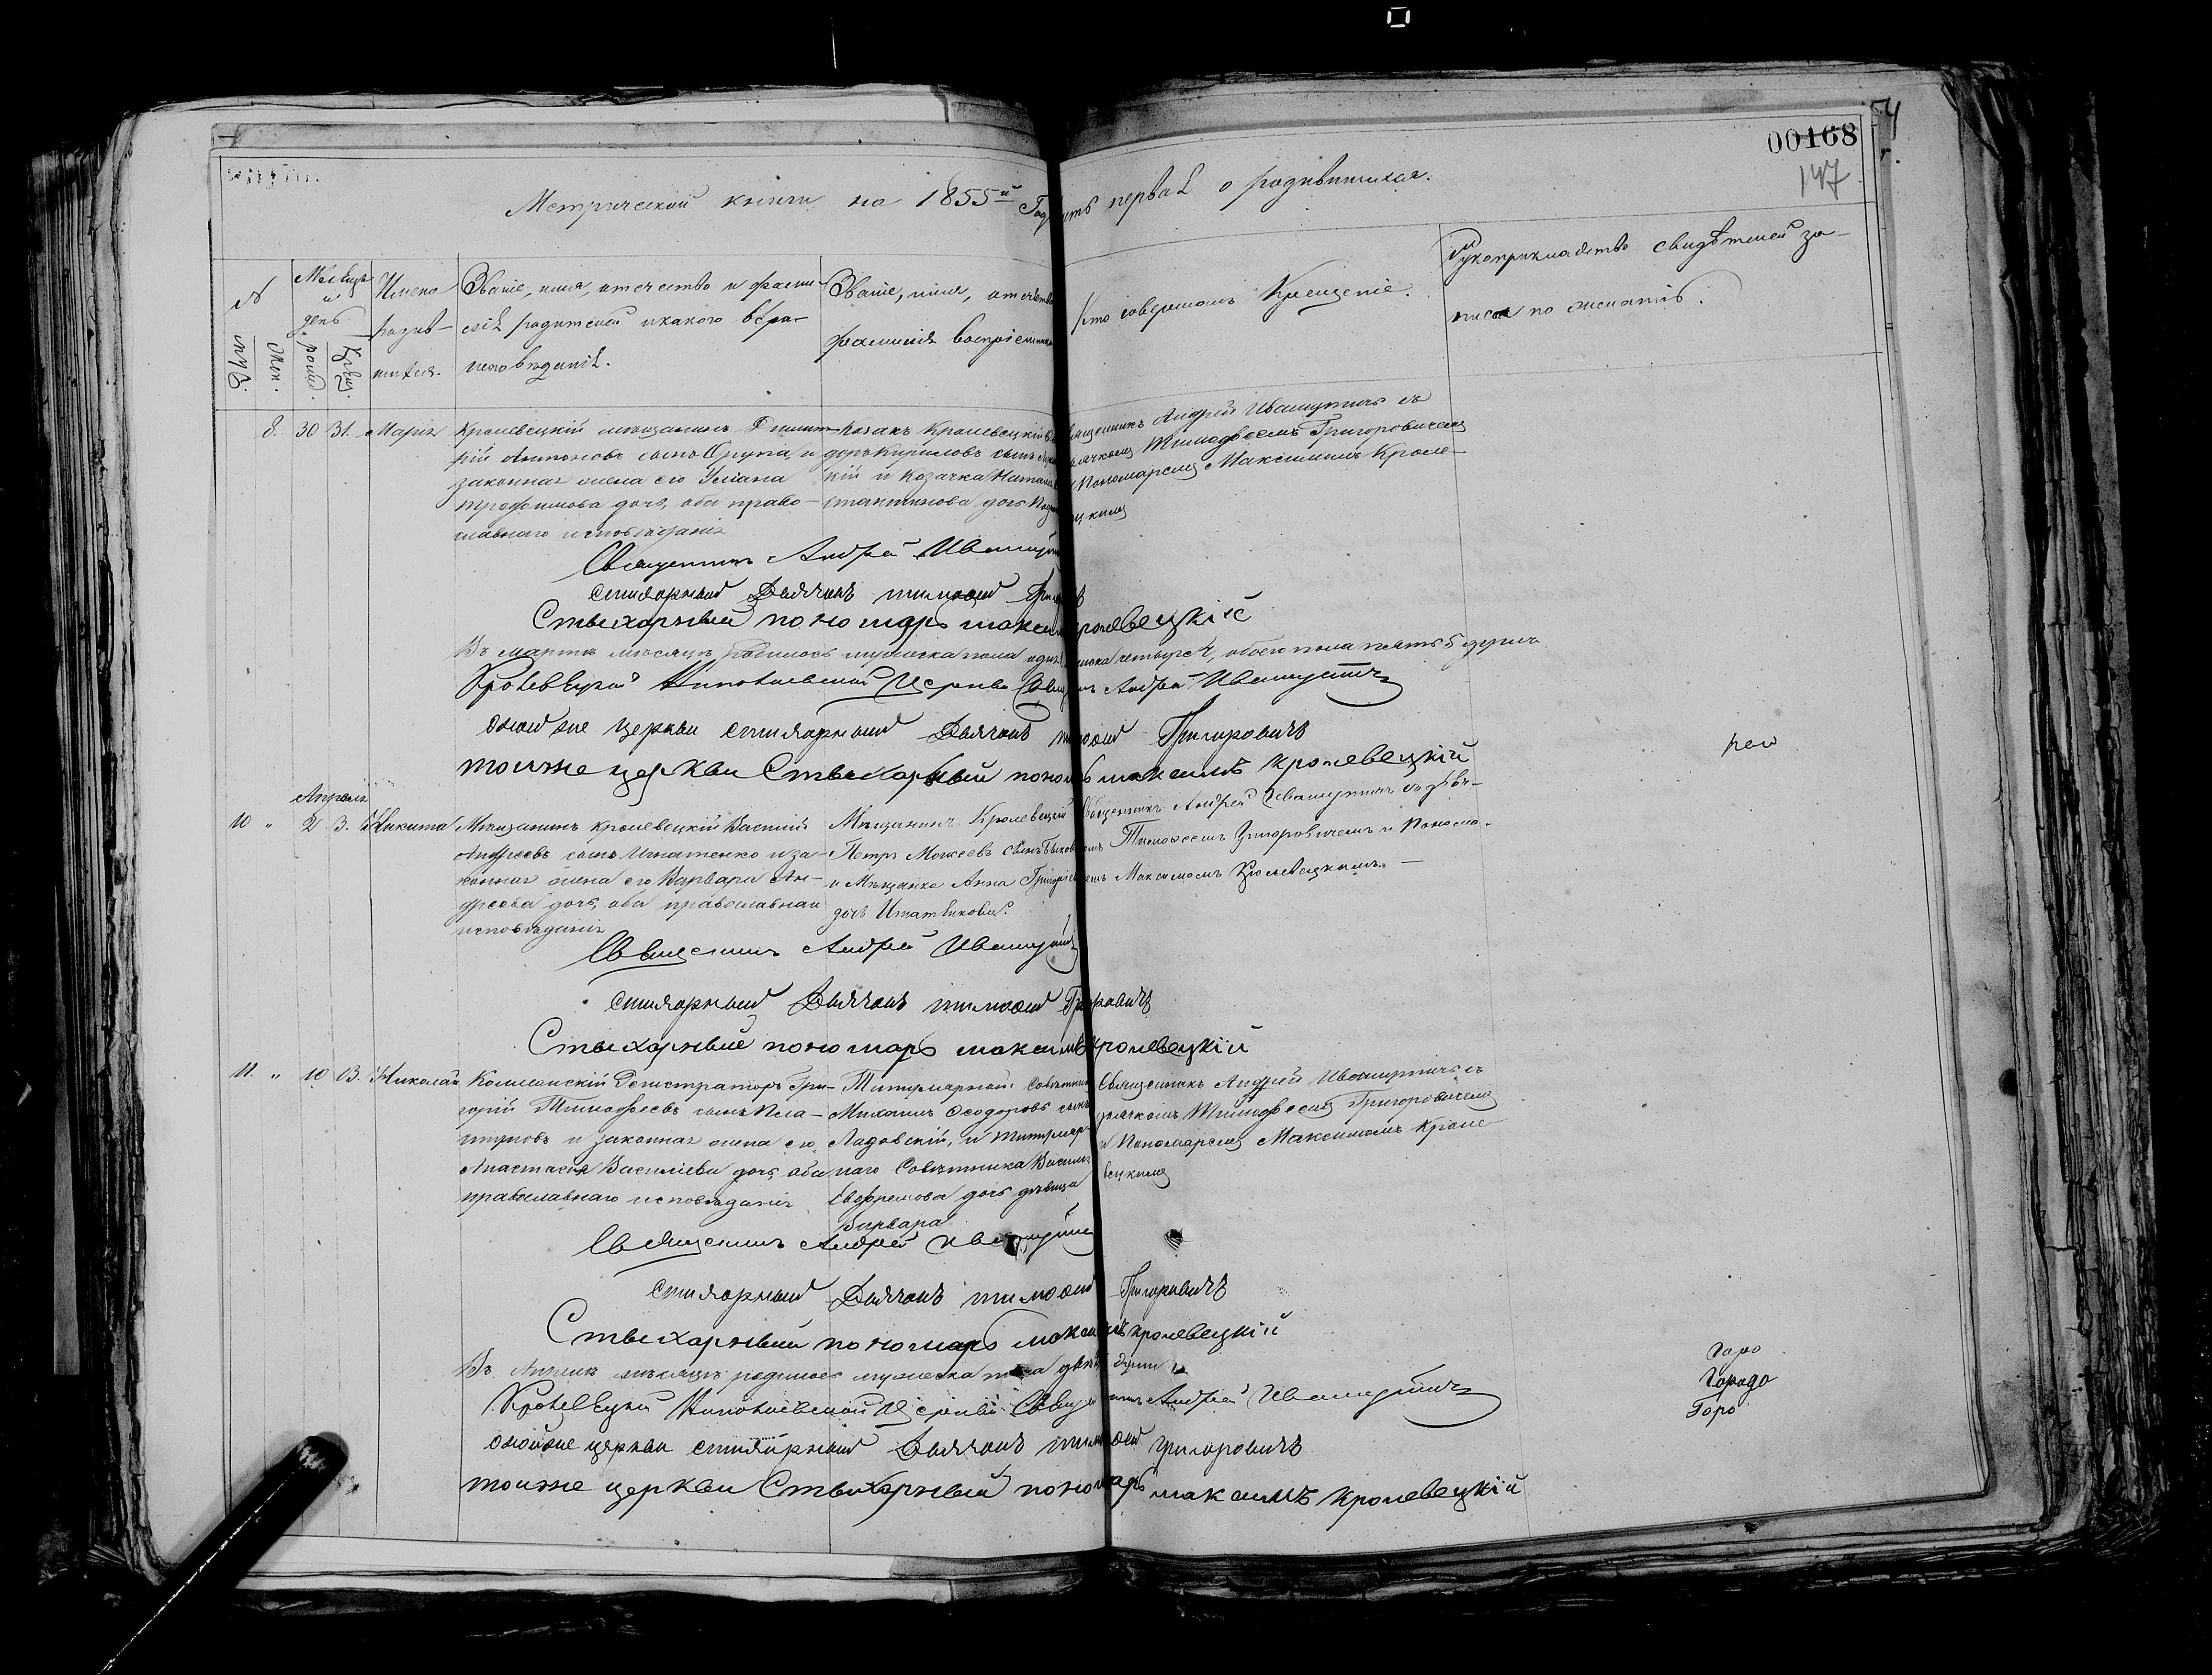 00168
147
Метрической книги на 1855й Годъ
часть первая о родившихся.
№
Мѣсяцъ
и
день
муж.
жен.
рожд.
крещ.
Имена
родив-
шихся.
Званіе, имя, отечество и фами-
лія родителей и какого вѣро-
исповѣданія.
Званіе, имя, отечество
фамилія воспріемник
Кто совершалъ Крещеніе.
Рукоприкладство свидѣтелей за-
писи по желанію.
8. 30 31. Марія
Кролевецкій мѣщанинъ Димит-
рій Антоновъ сынъ и
законная жена его Уліана
Трофимова дочь, оба право-
славнаго исповѣданія
Козакъ Кролевецкій
Кириловъ сынъ
кій и Козачка
стантинова дочь
Священникъ Андрей Ивашутичъ съ
дьячкомъ Тимофеемъ Григоровичемъ
и Пономаремъ Максимомъ Кроле-
вецкимъ
Священникъ Андрей Ивашутичъ
стихарный Дьячокъ тимофей Григоровичъ
Стыхарный пономарь максимъ кролевецкій
Въ мартѣ мѣсяцѣ родилось мужеска пола одна женска четыре 4, обоего пола пять 5 душъ
Кролевецкой Николаевской Церкви Священникъ Андрей Ивашутичъ
оной же церкви стихарный Дьячокъ тимофей Григоровичъ
тоиже церкви Стыхарный пономарь максимъ кролевецкій
рею
Апрѣля
10 " 2 3. Никита
Мѣщанинъ кролевецкій Василій
Андреевъ сынъ Игнатенко и за-
конная жена его Варвара Ан-
дреева дочь, оба православнаго
исповѣданія
Мѣщанинъ Кролевецкій
Петръ Моисеевъ сынъ Быков
и Мѣщанка Анна Григорьева
дочь Игнатенкова.
Священникъ Андрей Ивашутичъ съ дьяч-
комъ Тимофеемъ Григоровичемъ и Понома-
ремъ Максимомъ Кролевецкимъ. —
Священникъ Андрей Ивашутичъ
стихарный Дьячокъ тимофей Григоровичъ
Стыхарный пономарь максимъ кролевецкій
11. " 10 13. Николай
Колежскій Регистраторъ Гри-
горій Тимофеевъ сынъ Пла-
туновъ и законная жена его
Анастасія Василіева дочь, оба
православнаго исповѣданія
Титулярной Совѣтникъ
Михаилъ Феодоровъ сынъ
Ладовскій, и титуляр-
наго Совѣтника Василія
Евфремова дочь дѣвица
Варвара
Священникъ Андрей Ивашутичъ съ
дьячкомъ Тимофеемъ Григоровичемъ
и Пономаремъ Максимомъ Кроле-
вецкимъ
Священникъ Андрей Ивашутичъ
стихарный Дьячокъ тимофей Григоровичъ
Стыхарный пономарь максимъ кролевецкій
Въ Апрѣлѣ мѣсяцѣ родилось мужеска пола двѣ души 2
Кролевецкой Николаевской Церкви Священникъ Андрей Ивашутичъ
оной же церкви стихарный Дьячокъ тимофей Григоровичъ
тоиже церкви Стыхарный пономарь максимъ кролевецкій
Горо
Городо
Горо